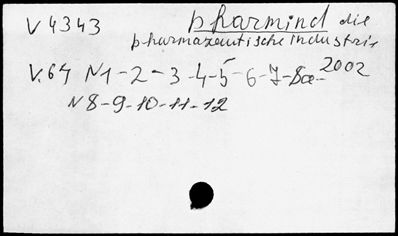 V 4343 pharmind die
pharmazeutische industrie
V.64 N1-2-3-4-5-6-7-8a-2002
N8-9-10-11-12